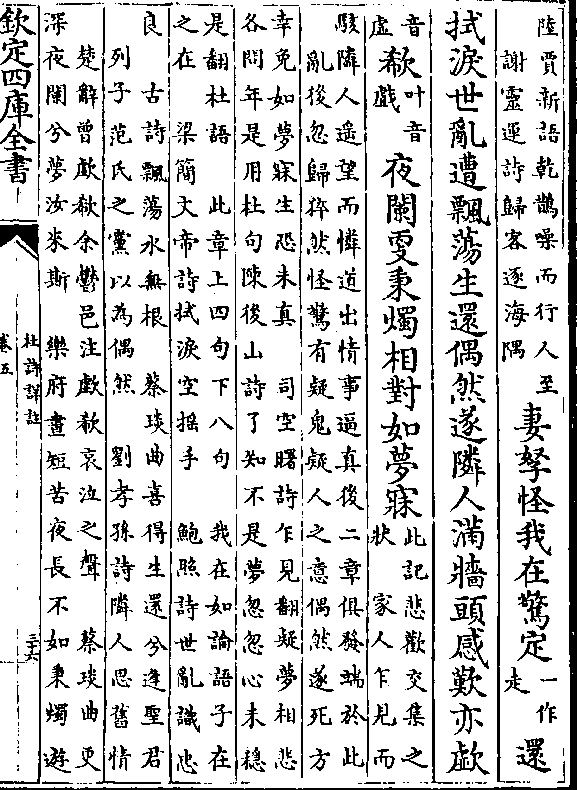 陸賈新語乾鵲噪而行人至
謝靈運詩歸客遂海隅
妻孥怪我在驚定一作走還
拭淚世亂遭飄蕩生還偶然遂隣人滿牆頭感歎亦歔
音虛欷叶音戲夜闌更秉燭相對如夢寐此記悲歡交集之
狀 家人乍見而
駭隣人遥望而憐道出情事逼真後二章俱發端於此
亂後忽歸猝然怪驚有疑鬼疑人之意偶然遂死方
幸免如夢寐生恐未真 司空曙詩乍見翻疑夢相悲
各問年是用杜句陳後山詩了知不是夢忽忽心未穩
是翻杜語 此章上四句下八句 我在如論語子在
之在 梁簡文帝詩拭淚空摇手 鮑照詩世亂識忠
良 古詩飄蕩水無根 蔡琰曲喜得生還兮逢聖君
列子范氏之黨以為偶然 劉孝孫詩隣人思舊情
楚辭曾歔欷余鬱邑注歔欷哀泣之聲 蔡琰曲更
深夜闌兮夢汝来斯 樂府晝短苦夜長不如秉燭遊
欽定四庫全書
杜詩詳註
卷五
三十六